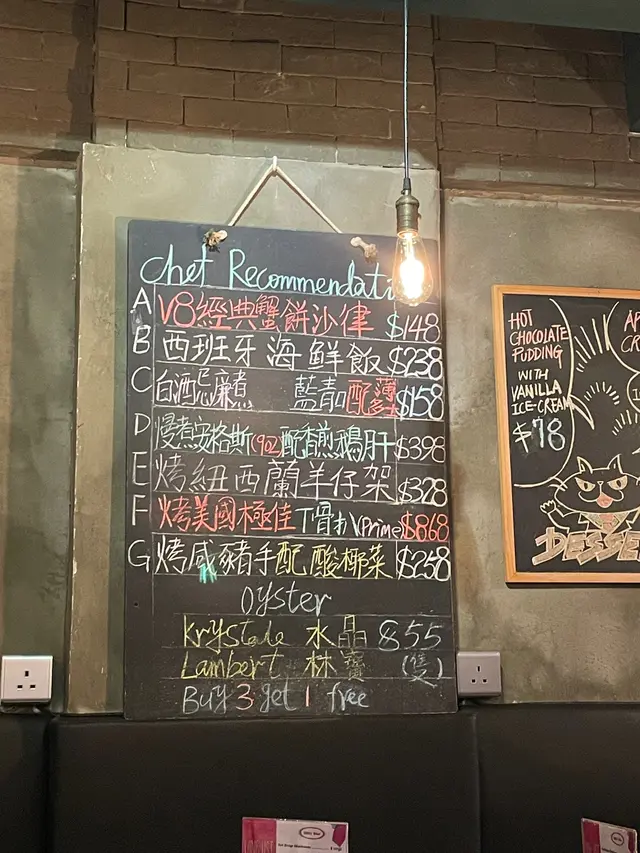 Chef Recommendati
A V8經典蟹餅沙律 $148
B 西班牙海鮮飯 $238
C 白酒忌廉煮 藍青配薄 $158
D 慢煮安格斯(9oz)配香煎鵝肝 $398
E 烤紐西蘭羊仔架 $328
F 烤美國極佳丁骨扒(Prime $868
G 烤咸豬手配酸椰菜 $258
Oyster
Krystale 水晶 855
Lambert 林 (隻)
Buy 3 get 1 free
HOT
CHOCOLATE
PUDDING
WITH
VANILLA
ICE-CREAM
$78
AP
CR
DESSE